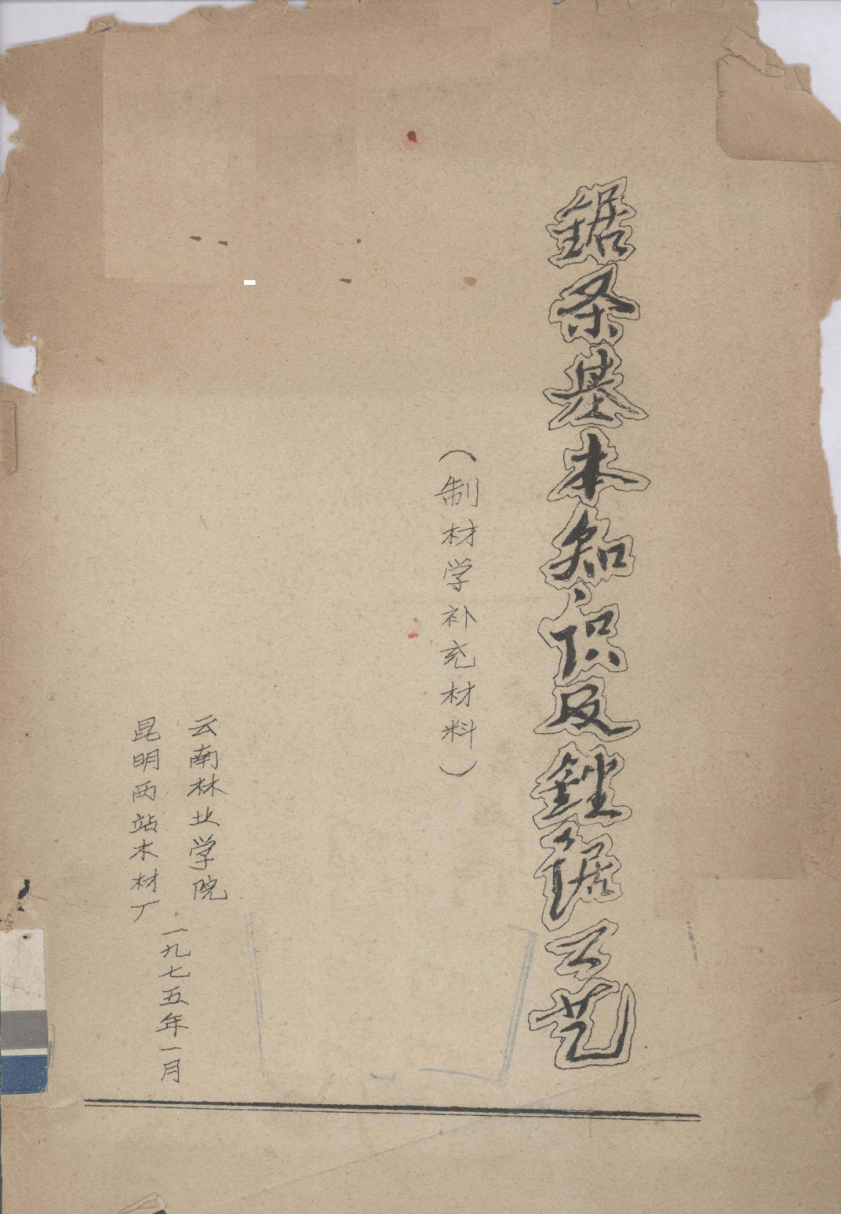 鋸条基本知识及銼锯工艺
（制材学补充材料）
云南林业学院
昆明两站木材厂
一九七五年一月